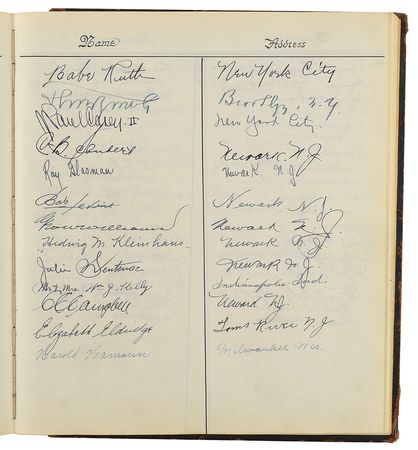 Name Address
Babe Ruth New York City
Brooklyn, N.Y.
Carey II New York City.
C.B. Newark N.J.
Ray Glasman Newark N.J.
Bob Newark N.J.
Newark N.J.
Hedwig M. Kleinhans Newark N.J.
Julia Newark N.J.
Mr & Mrs. Wm J. Kelly Indianapolis Ind.
C Campbell Newark NJ
Elizabeth Eldridge Toms River NJ
Harold Hamann Milwaukee Wis.